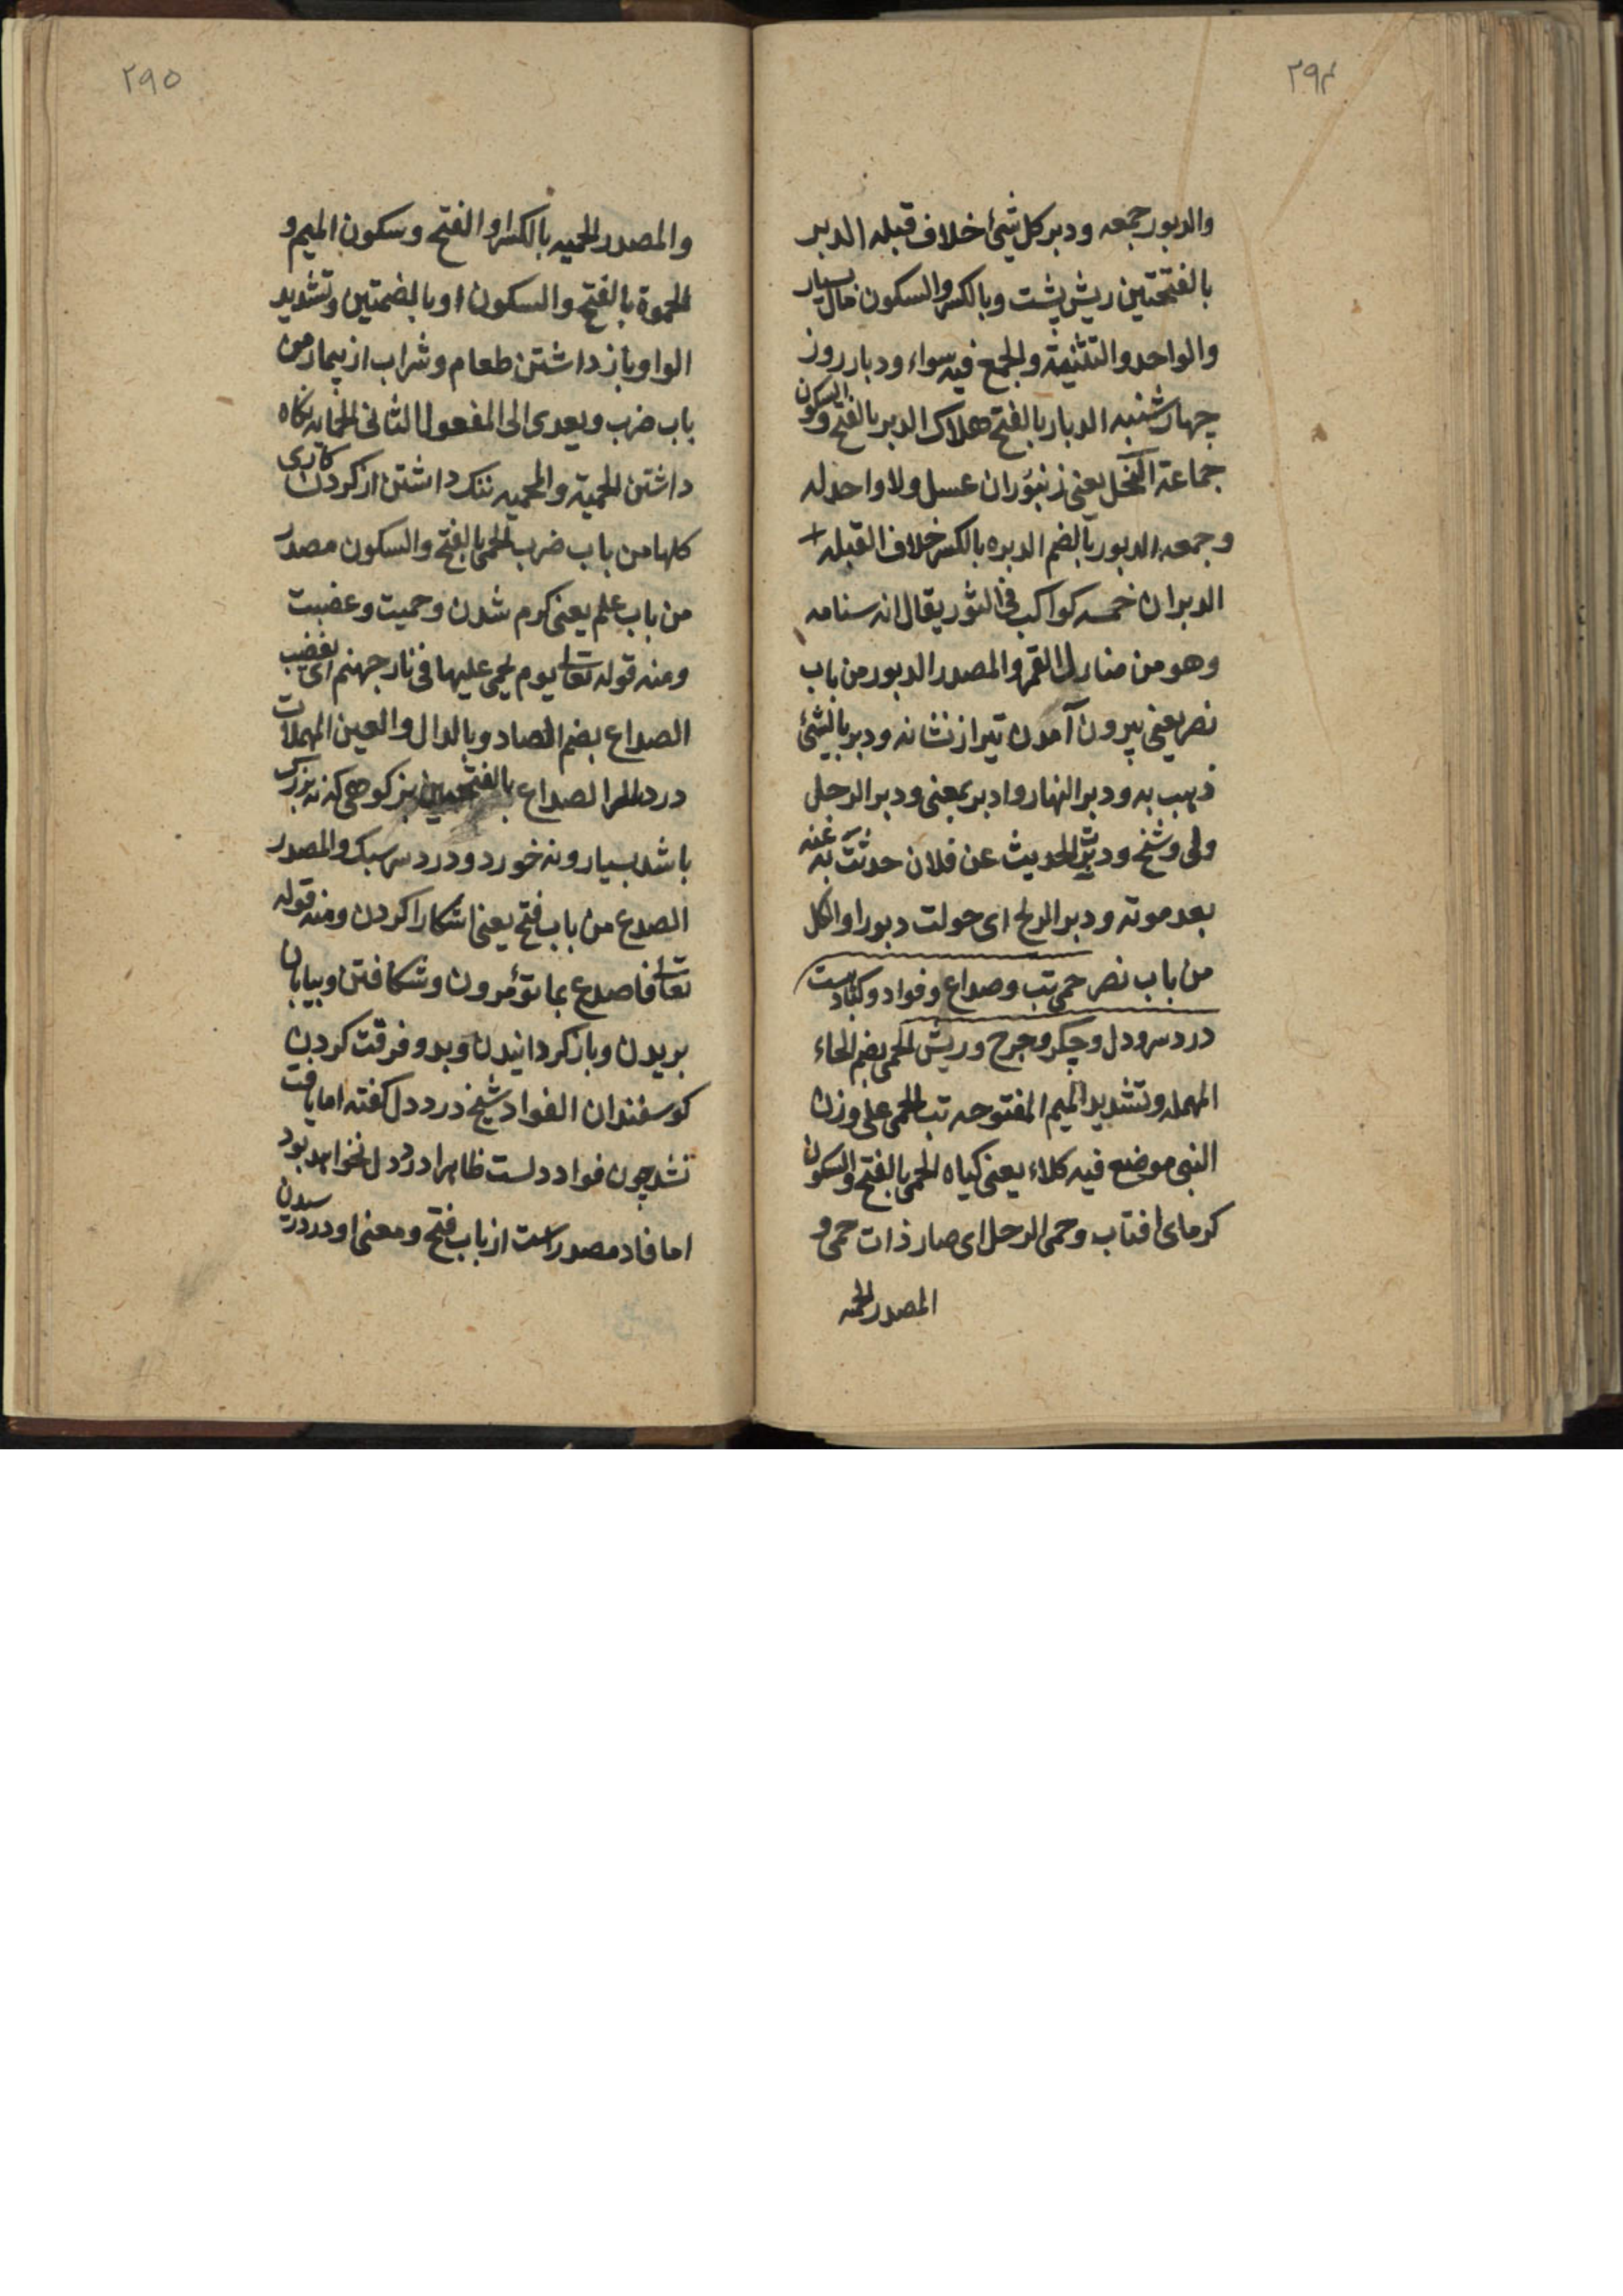 ٢٩٤
والدبور جمعه ودبر كل شیٔ خلاف قبله الدبر
بالفتحتین ریش پشت وبالكسر والسكون مال بسیار
والواحد والتثنیة والجمع فیه سواء ودبار روز
چهارشنبه الدبار بالفتح هلاک الدبر بالفتح والسكون
جماعة النحل یعنی زنبوران عسل ولا واحد له
وجمعه الدبور بالضم الدبره بالكسر خلاف القبله
الدبران خمسه كواكب فی الثور یقال انه سنامه
وهو من منازل القمر والمصدر الدبور من باب
نصر یعنی بیرون آمدن تیر از نشانه ودبر بالشیٔ
ذهب به ودبر النهار وادبر بمعنی ودبر الرجل
ولی وشیخ ودبر الحدیث عن فلان حدثت به عنه
بعد موته ودبر الریح ای حولت دبورا والكل
من باب نصر حمی تب وصداع وفواد وكباد ست
درد سر ودل وجكر وجرح وریش الحمی بضم الحاء
المهمله وتشدید المیم المفتوحه تب الحمی علی وزن
النبی موضع فیه كلاء یعنی كیاه الحمی بالفتح والسكون
كرمای افتاب وحمی الرجل ای صار ذات حمی و
المصدر الحمیه
٢٩٥
والمصدر الحمیه بالكسر او الفتح وسكون المیم و
الحموة بالفتح والسكون او بالضمتین وتشدید
الواو باز داشتن طعام وشراب از بیمار من
باب ضرب ویعدی الی المفعول الثانی الحمایه نكاه
داشتن الحمیة والمحمیه ننک داشتن از كردن كاری
كلها من باب ضرب الحمی بالفتح والسكون مصدر
من باب علم یعنی كرم شدن وحمیت وغضبت
ومنه قوله تعالی یوم یحمی علیها فی نار جهنم ای یغضب
الصداع بضم الصاد وبالدال والعین المهملات
درد سر الصداع بالفتحتین بز كوهی كه نه بزرک
باشد بسیار ونه خورد ودرد سر سبک والمصدر
الصدع من باب فتح یعنی اشكارا كردن ومنه قوله
تعالی فاصدع بما تؤمر ون وشكافتن وبیابان
بریدن وباز كردانیدن وبدو فرقت كردن
كوسفندان الفواد شیخ درد دل كفته اما یافت
نشد چون فواد دلست ظاهرا درد دل نخواهد بود
اما فاد مصدر است از باب فتح ومعنی او درد رسیدن